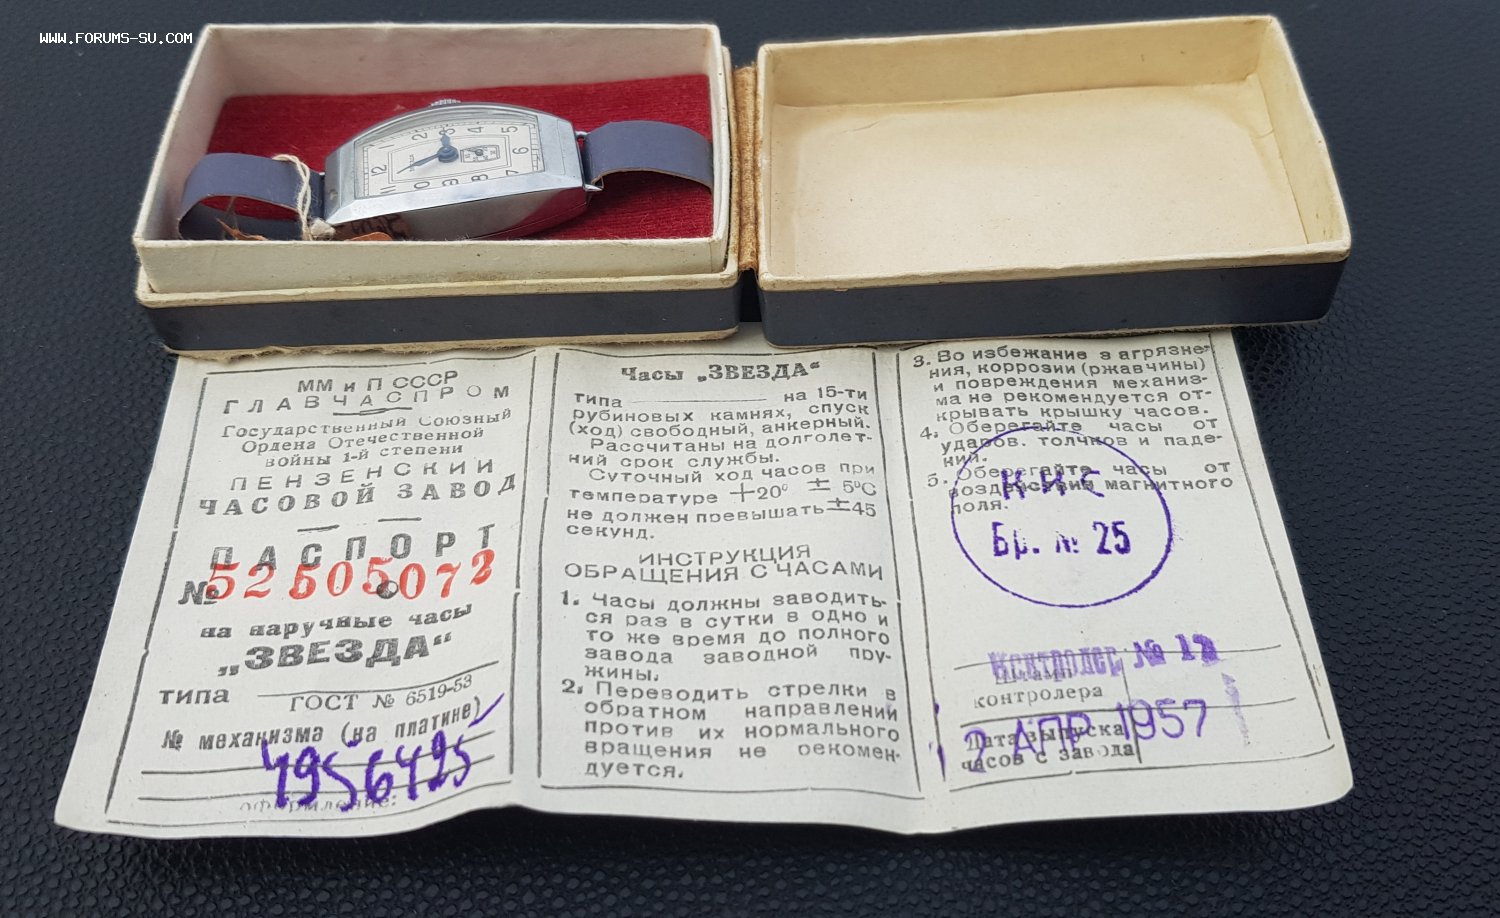 WWW.FORUMS-SU.COM
12 2 3 4 5 6 7 8 9 10 11
ММ и П СССР
ГЛАВЧАСПРОМ
Государственный Союзный
Ордена Отечественной
войны 1-й степени
ПЕНЗЕНСКИЙ
ЧАСОВОЙ ЗАВОД
ПАСПОРТ
№ 52505072
на наручные часы
„ЗВЕЗДА“
типа
ГОСТ № 6519-53
№ механизма (на платине)
4956425
оформление:
Часы „ЗВЕЗДА“
типа на 15-ти
рубиновых камнях, спуск
(ход) свободный, анкерный.
Рассчитаны на долголет-
ний срок службы.
Суточный ход часов при
температуре +20° ± 5°С
не должен превышать ±45
секунд.
ИНСТРУКЦИЯ
ОБРАЩЕНИЯ С ЧАСАМИ
1. Часы должны заводить-
ся раз в сутки в одно и
то же время до полного
завода заводной пру-
жины.
2. Переводить стрелки в
обратном направлении
против их нормального
вращения не рекомен-
дуется.
3. Во избежание загрязне-
ния, коррозии (ржавчины)
и повреждения механиз-
ма не рекомендуется от-
крывать крышку часов.
4. Оберегайте часы от
ударов, толчков и паде-
ний.
5. Оберегайте часы от
воздействия магнитного
поля.
Бр. № 25
Контролер № 12
контролера
2 АПР 1957
Дата выпуска
часов с завода